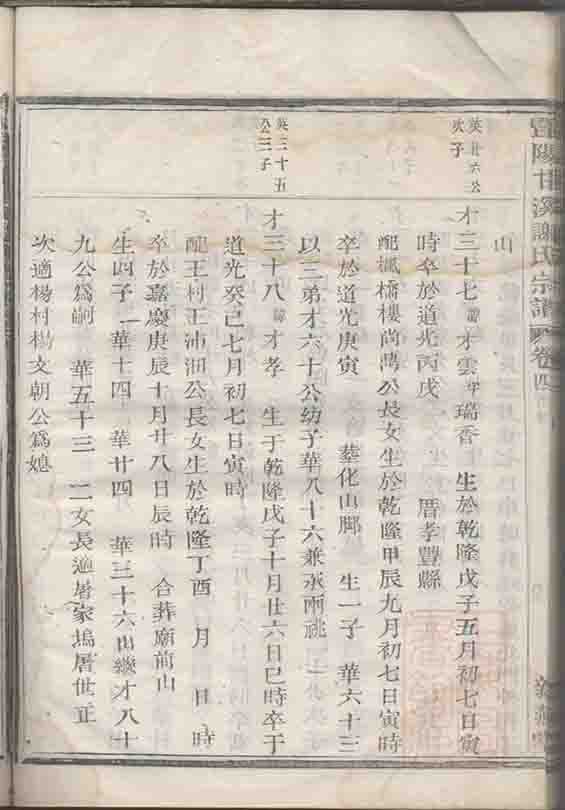 暨陽甘溪謝氏宗譜
卷四
山
英廿六公
次子
才三十七 諱才雲字瑞香 生於乾隆戊子五月初七日寅
時卒於道光丙戌 厝孝豐縣
配楓橋樓尚灣公長女生於乾隆甲辰九月初七日寅時
卒於道光庚寅 葬化山脚 生一子 華六十三
以三弟才六十公幼子華八十六兼承兩祧
英三十五
公三子
才三十八 諱才孝 生于乾隆戊子十月廿六日巳時卒于
道光癸巳七月初七日寅時
配王村王沛泗公長女生於乾隆丁酉 月 日 時
卒於嘉慶庚辰十月廿八日辰時 合葬廟前山
生四子 華十四 華廿四 華三十六出繼才八十
九公爲嗣 華五十三 二女長適屠家塢屠世正
次適楊村楊文朝公爲媳